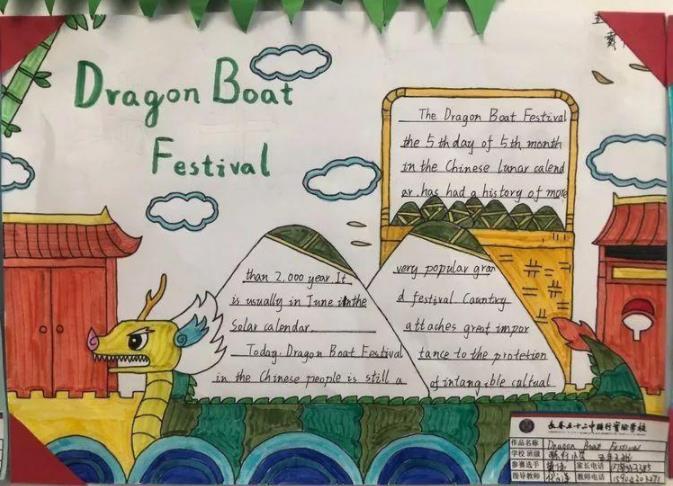 Dragon Boat
Festival
The Dragon Boat Festival
the 5th day of 5th month
in the Chinese lunar calend
ar. has had a history of more
than 2,000 year. It
is usually in June in the
Solar calendar.
Today. Dragon Boat Festival
in the Chinese people is still a
very popular gran
d festival Country
attaches great impor
tance to the protetion
of intangible caltual
长春五十二中赫行实验学校
作品名称 Dragon Boat Festival
学校班级
参赛选手 家长电话
指导教师 教师电话